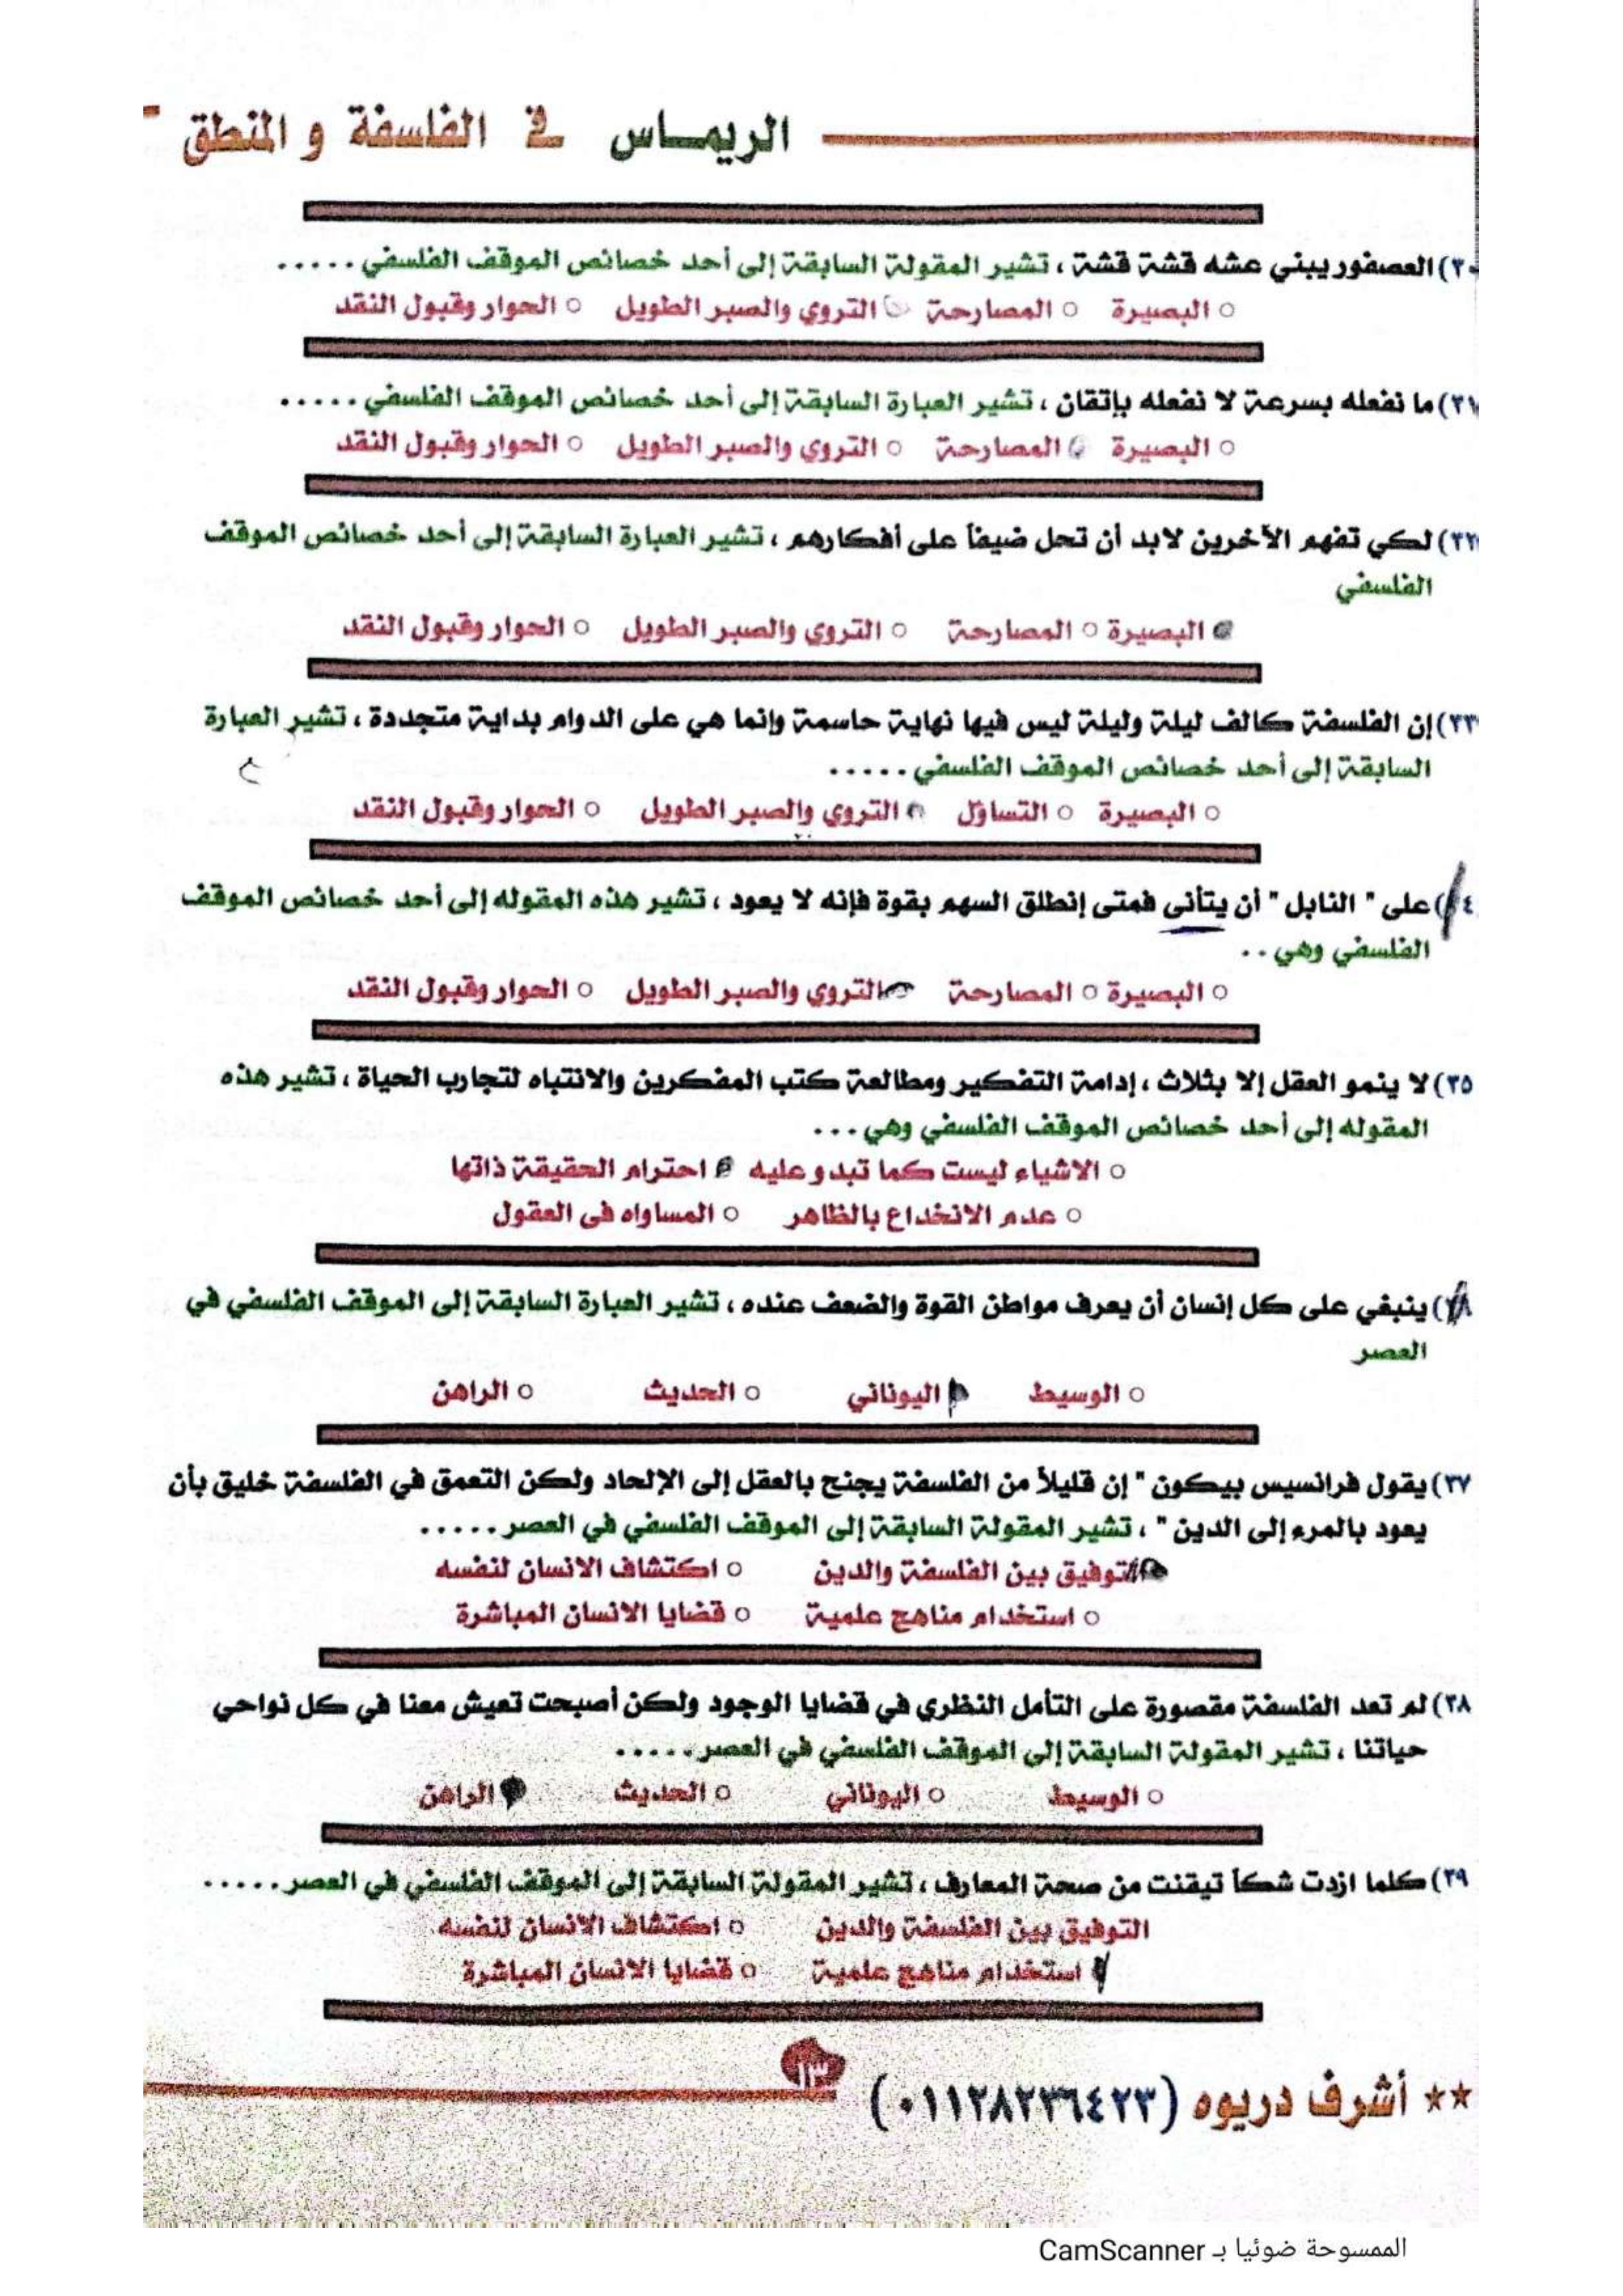 الريماس في الفلسفة و المنطق
٣٠) العصفور يبني عشه قشة قشة ، تشير المقولة السابقة إلى أحد خصائص الموقف الفلسفي .....
○ البصيرة ○ المصارحة ○ التروي والصبر الطويل ○ الحوار وقبول النقد
٣١) ما نفعله بسرعة لا نفعله بإتقان ، تشير العبارة السابقة إلى أحد خصائص الموقف الفلسفي .....
○ البصيرة ○ المصارحة ○ التروي والصبر الطويل ○ الحوار وقبول النقد
٣٢) لكي تفهم الآخرين لابد أن تحل ضيفاً على أفكارهم ، تشير العبارة السابقة إلى أحد خصائص الموقف
الفلسفي
○ البصيرة ○ المصارحة ○ التروي والصبر الطويل ○ الحوار وقبول النقد
٣٣) إن الفلسفة كالف ليلة وليلة ليس فيها نهاية حاسمة وإنما هي على الدوام بداية متجددة ، تشير العبارة
السابقة إلى أحد خصائص الموقف الفلسفي .....
○ البصيرة ○ التساؤل ○ التروي والصبر الطويل ○ الحوار وقبول النقد
٤) على " النابل " أن يتأنى فمتى إنطلق السهم بقوة فإنه لا يعود ، تشير هذه المقوله إلى أحد خصائص الموقف
الفلسفي وهي ..
○ البصيرة ○ المصارحة ○ التروي والصبر الطويل ○ الحوار وقبول النقد
٣٥) لا ينمو العقل إلا بثلاث ، إدامة التفكير ومطالعة كتب المفكرين والانتباه لتجارب الحياة ، تشير هذه
المقوله إلى أحد خصائص الموقف الفلسفي وهي ...
○ الاشياء ليست كما تبدو عليه ○ احترام الحقيقة ذاتها
○ عدم الانخداع بالظاهر ○ المساواه فى العقول
) ينبغي على كل إنسان أن يعرف مواطن القوة والضعف عنده ، تشير العبارة السابقة إلى الموقف الفلسفي في
العصر
○ الوسيط ○ اليوناني ○ الحديث ○ الراهن
٣٧) يقول فرانسيس بيكون " إن قليلاً من الفلسفة يجنح بالعقل إلى الإلحاد ولكن التعمق في الفلسفة خليق بأن
يعود بالمرء إلى الدين " ، تشير المقولة السابقة إلى الموقف الفلسفي في العصر .....
○ التوفيق بين الفلسفة والدين ○ اكتشاف الانسان لنفسه
○ استخدام مناهج علمية ○ قضايا الانسان المباشرة
٣٨) لم تعد الفلسفة مقصورة على التأمل النظري في قضايا الوجود ولكن أصبحت تعيش معنا في كل نواحي
حياتنا ، تشير المقولة السابقة إلى الموقف الفلسفي في العصر .....
○ الوسيط ○ اليوناني ○ الحديث ○ الراهن
٣٩) كلما ازدت شكاً تيقنت من صحة المعارف ، تشير المقولة السابقة إلى الموقف الفلسفي في العصر .....
التوفيق بين الفلسفة والدين ○ اكتشاف الانسان لنفسه
○ استخدام مناهج علمية ○ قضايا الانسان المباشرة
١٣
** أشرف دريوه (٠١١٢٨٢٣٦٤٢٣)
الممسوحة ضوئيا بـ CamScanner